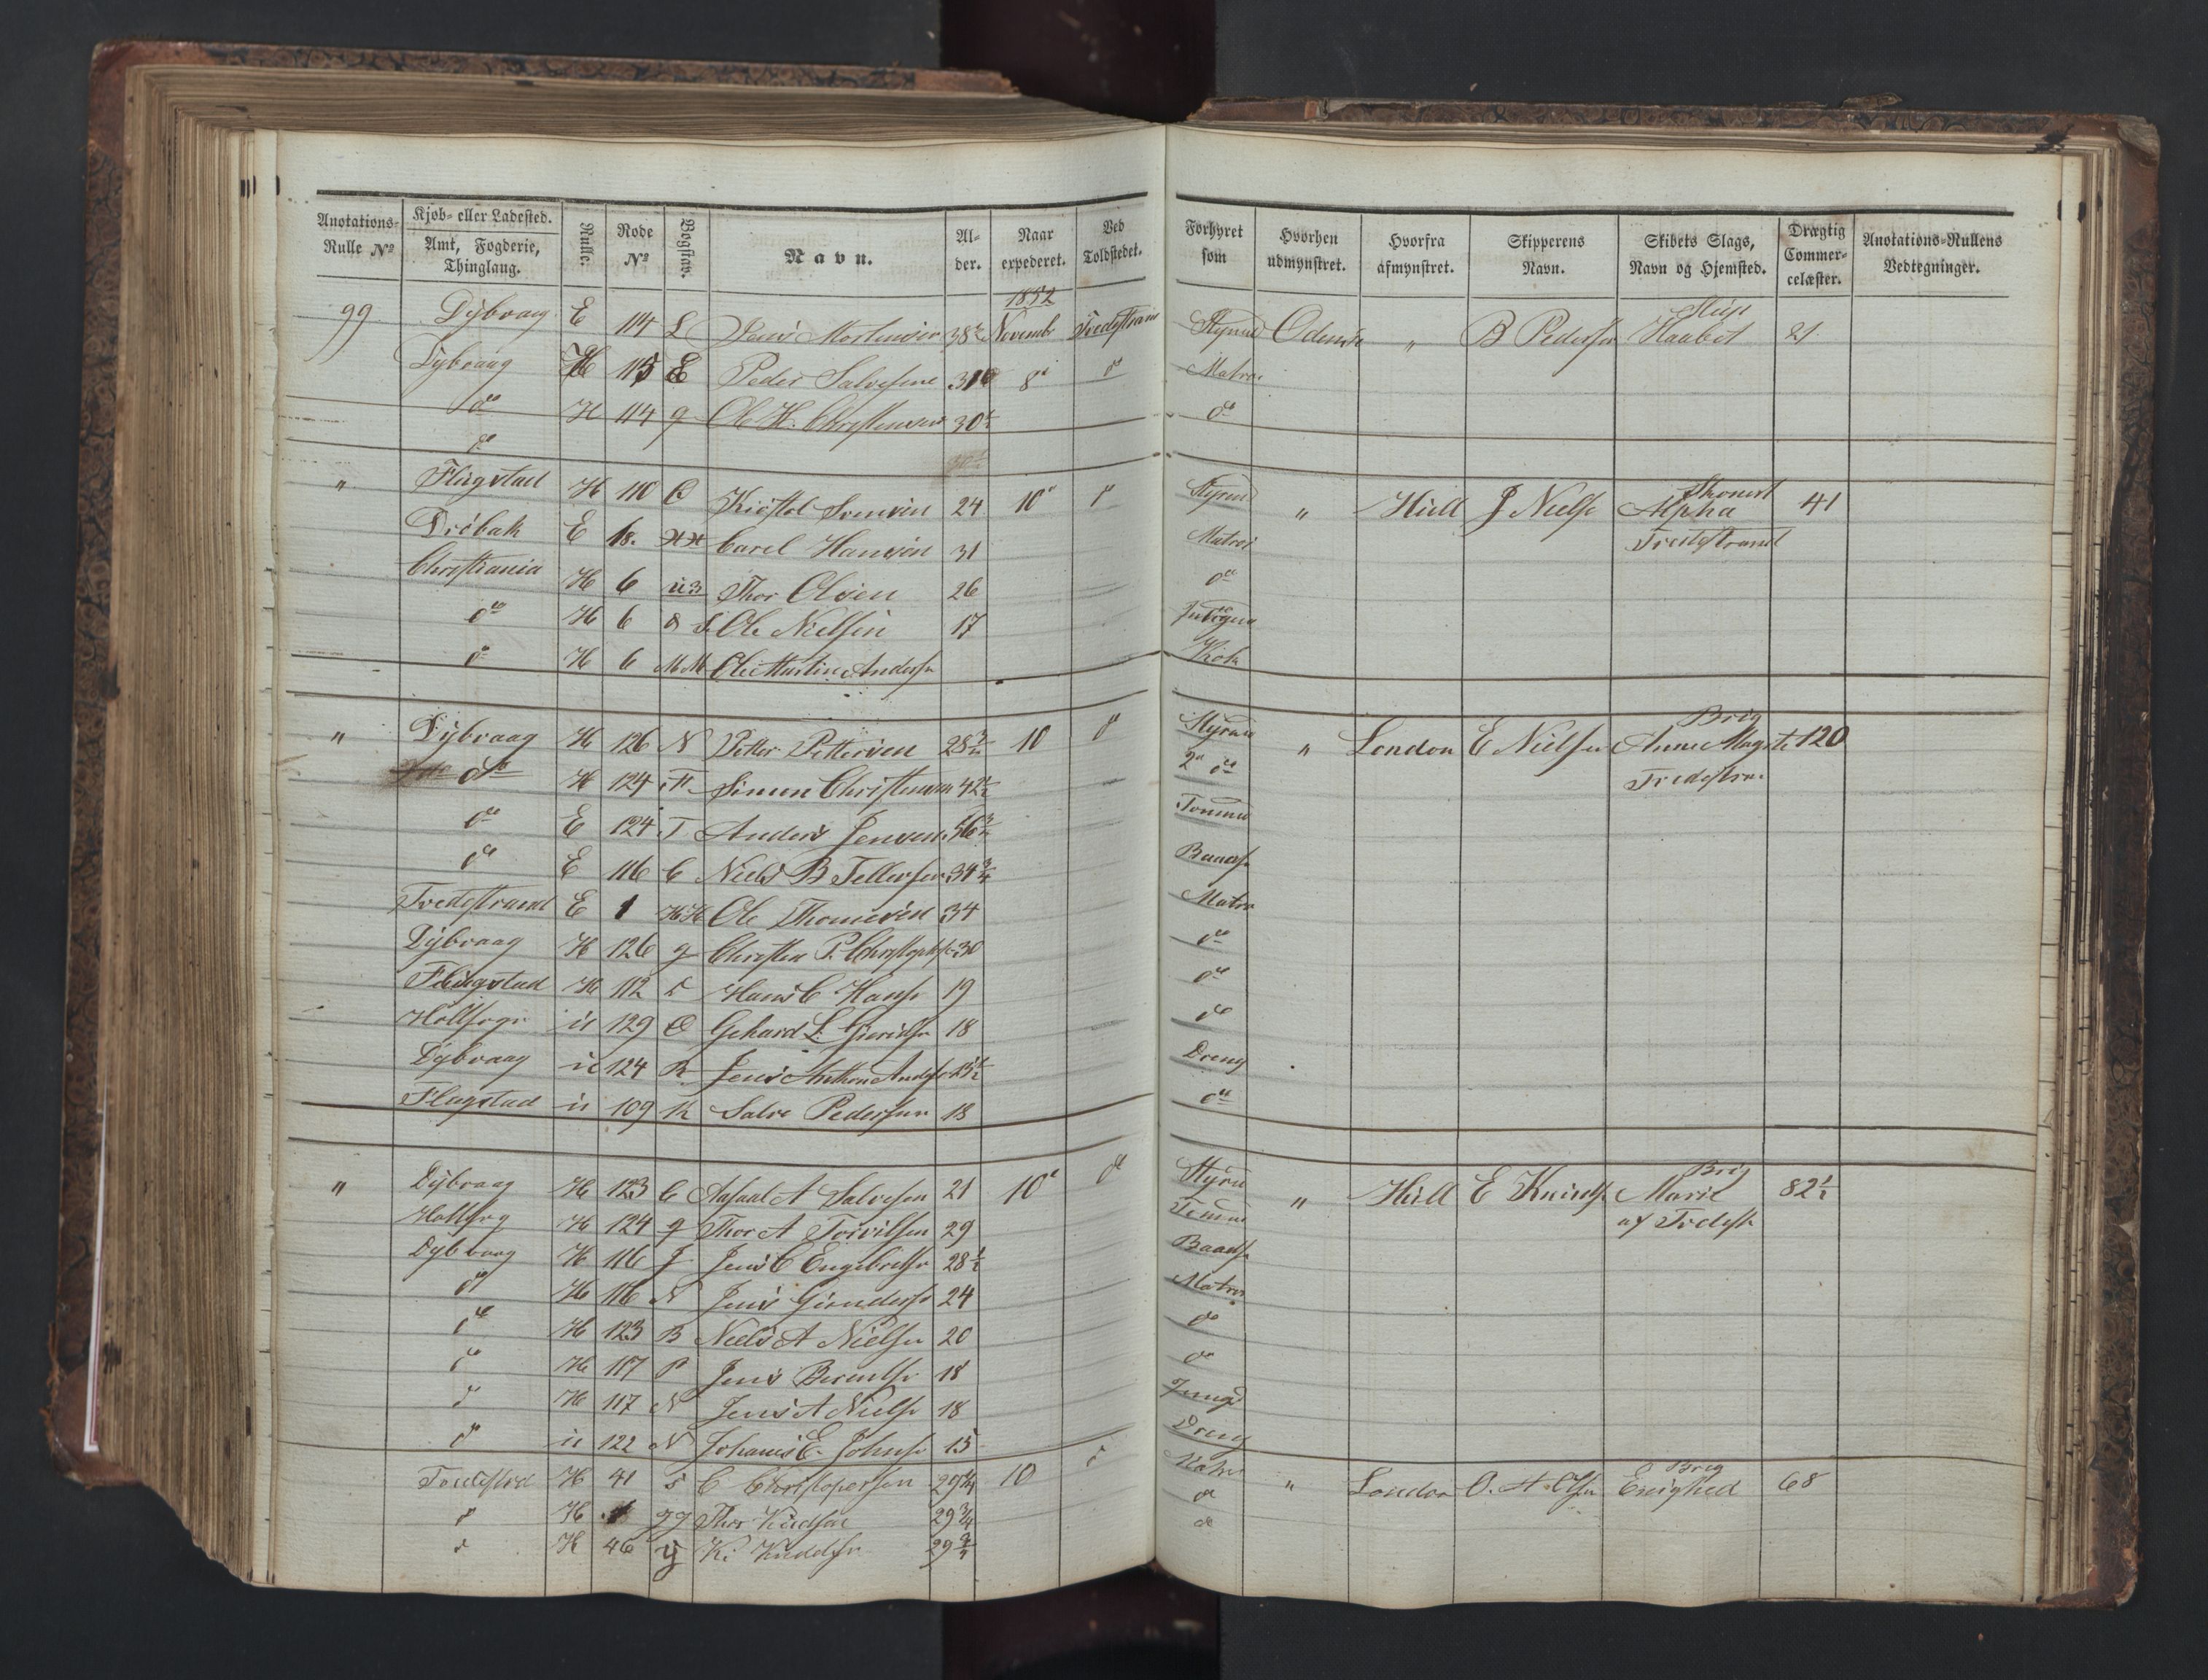 Anotations-Rulle No | Kjøb- eller Ladested. Amt, Fogderie, Thinglaug. | Rulle. | Rode No | Bogstav. | Navn. | Alder. | Naar expederet. | Ved Toldstedet. | Forhyret som | Hvorhen udmynstret. | Hvorfra afmynstret. | Skipperens Navn. | Skibets Slags, Navn og Hjemsted. | Drægtig Commercelæster. | Anotations-Rullens Vedtegninger.
1852 | Slup
99 | Dybvaag | E | 114 | L | Jens Mortensen | 38½ | Novembr | Tvedestrand | Styrmd | Odense | " | B Pedersen | Haabet | 21
Dybvaag | H | 115 | E | Peder Salvesen | 31 | 8d | do | Matro
do | H | 114 | g | Ole H. Christensen | 30½ | do
do
" | Flagstad | H | 110 | C | Kistol Svensen | 24 | 10d | do | Styrmd | " | Hull | J Nielse | Skonert Alpha | 41
Dröbak | E | 18. | HH | Carel Hansen | 31 | Matros | Tvedestrand
Christiania | H | 6 | ü3 | Thor Olsen | 26 | do
do | H | 6 | Ole Nielsen | 17 | Jungm
do | H | 6 | MM | Ole Martin Anderse | Kok
" | Dybvaag | H | 126 | N | Petter Pettersen | 28¾ | 10 | do | Styrm | " | London | E Nielsen | Brig Anne Magrete | 120
do | H | 124 | F | Simon Christensen | 42½ | 2d do | Tvedestra.
do | E | 124 | T | Anders Jensen | 56¾ | Tømmd
do | E | 116 | C | Niels B Tellefsen | 34¾ | Baads
Tvedestrand | E | 1 | HH | Ole Thomesen | 34 | Matro
Dybvaag | H | 126 | g | Christen P. Christophs | 30 | do
Flagstad | H | 112 | Hans C Hanse | 19 | do
Holtsogn | ü | 129 | Gehard L. | 18 | do
Dybvaag | ü | 124 | R | Jens Anthon Anders | 15½ | Dreng
Flagstad | ü | 109 | K | Salve Pedersen | 18 | do
" | Dybvaag | H | 123 | C | Aasuld A Salvesen | 21 | 10d | do | Styrm | " | Hull | E Knuds | Brig Marie | 82½
Holtsog | H | 124 | g | Thor A Torvilsen | 29 | Tømm | af Tvedest
Dybvaag | H | 116 | J | Jens C Engebretse | 28½ | Baads
do | H | 116 | N | Jens Gundersn | 24 | Matros
do | H | 123 | B | Niels A Nielsen | 20 | do
do | H | 117 | P | Jens Berentse | 18 | do
do | H | 117 | N | Jens A Nielse | 18 | Jungm
do | ü | 122 | N | Johanis E. Johnse | 15 | Dreng
Tvedestrd | H | 41 | s | C Christopersen | 29¾ | 10 | do | Matro | " | London | O. A Olsen | Brig Enighed | 68
do | H | 1 | gg | Thor Knudsen | 29¾ | do
do | H | 46 | ij | K. Knudsen | 29¾ | do